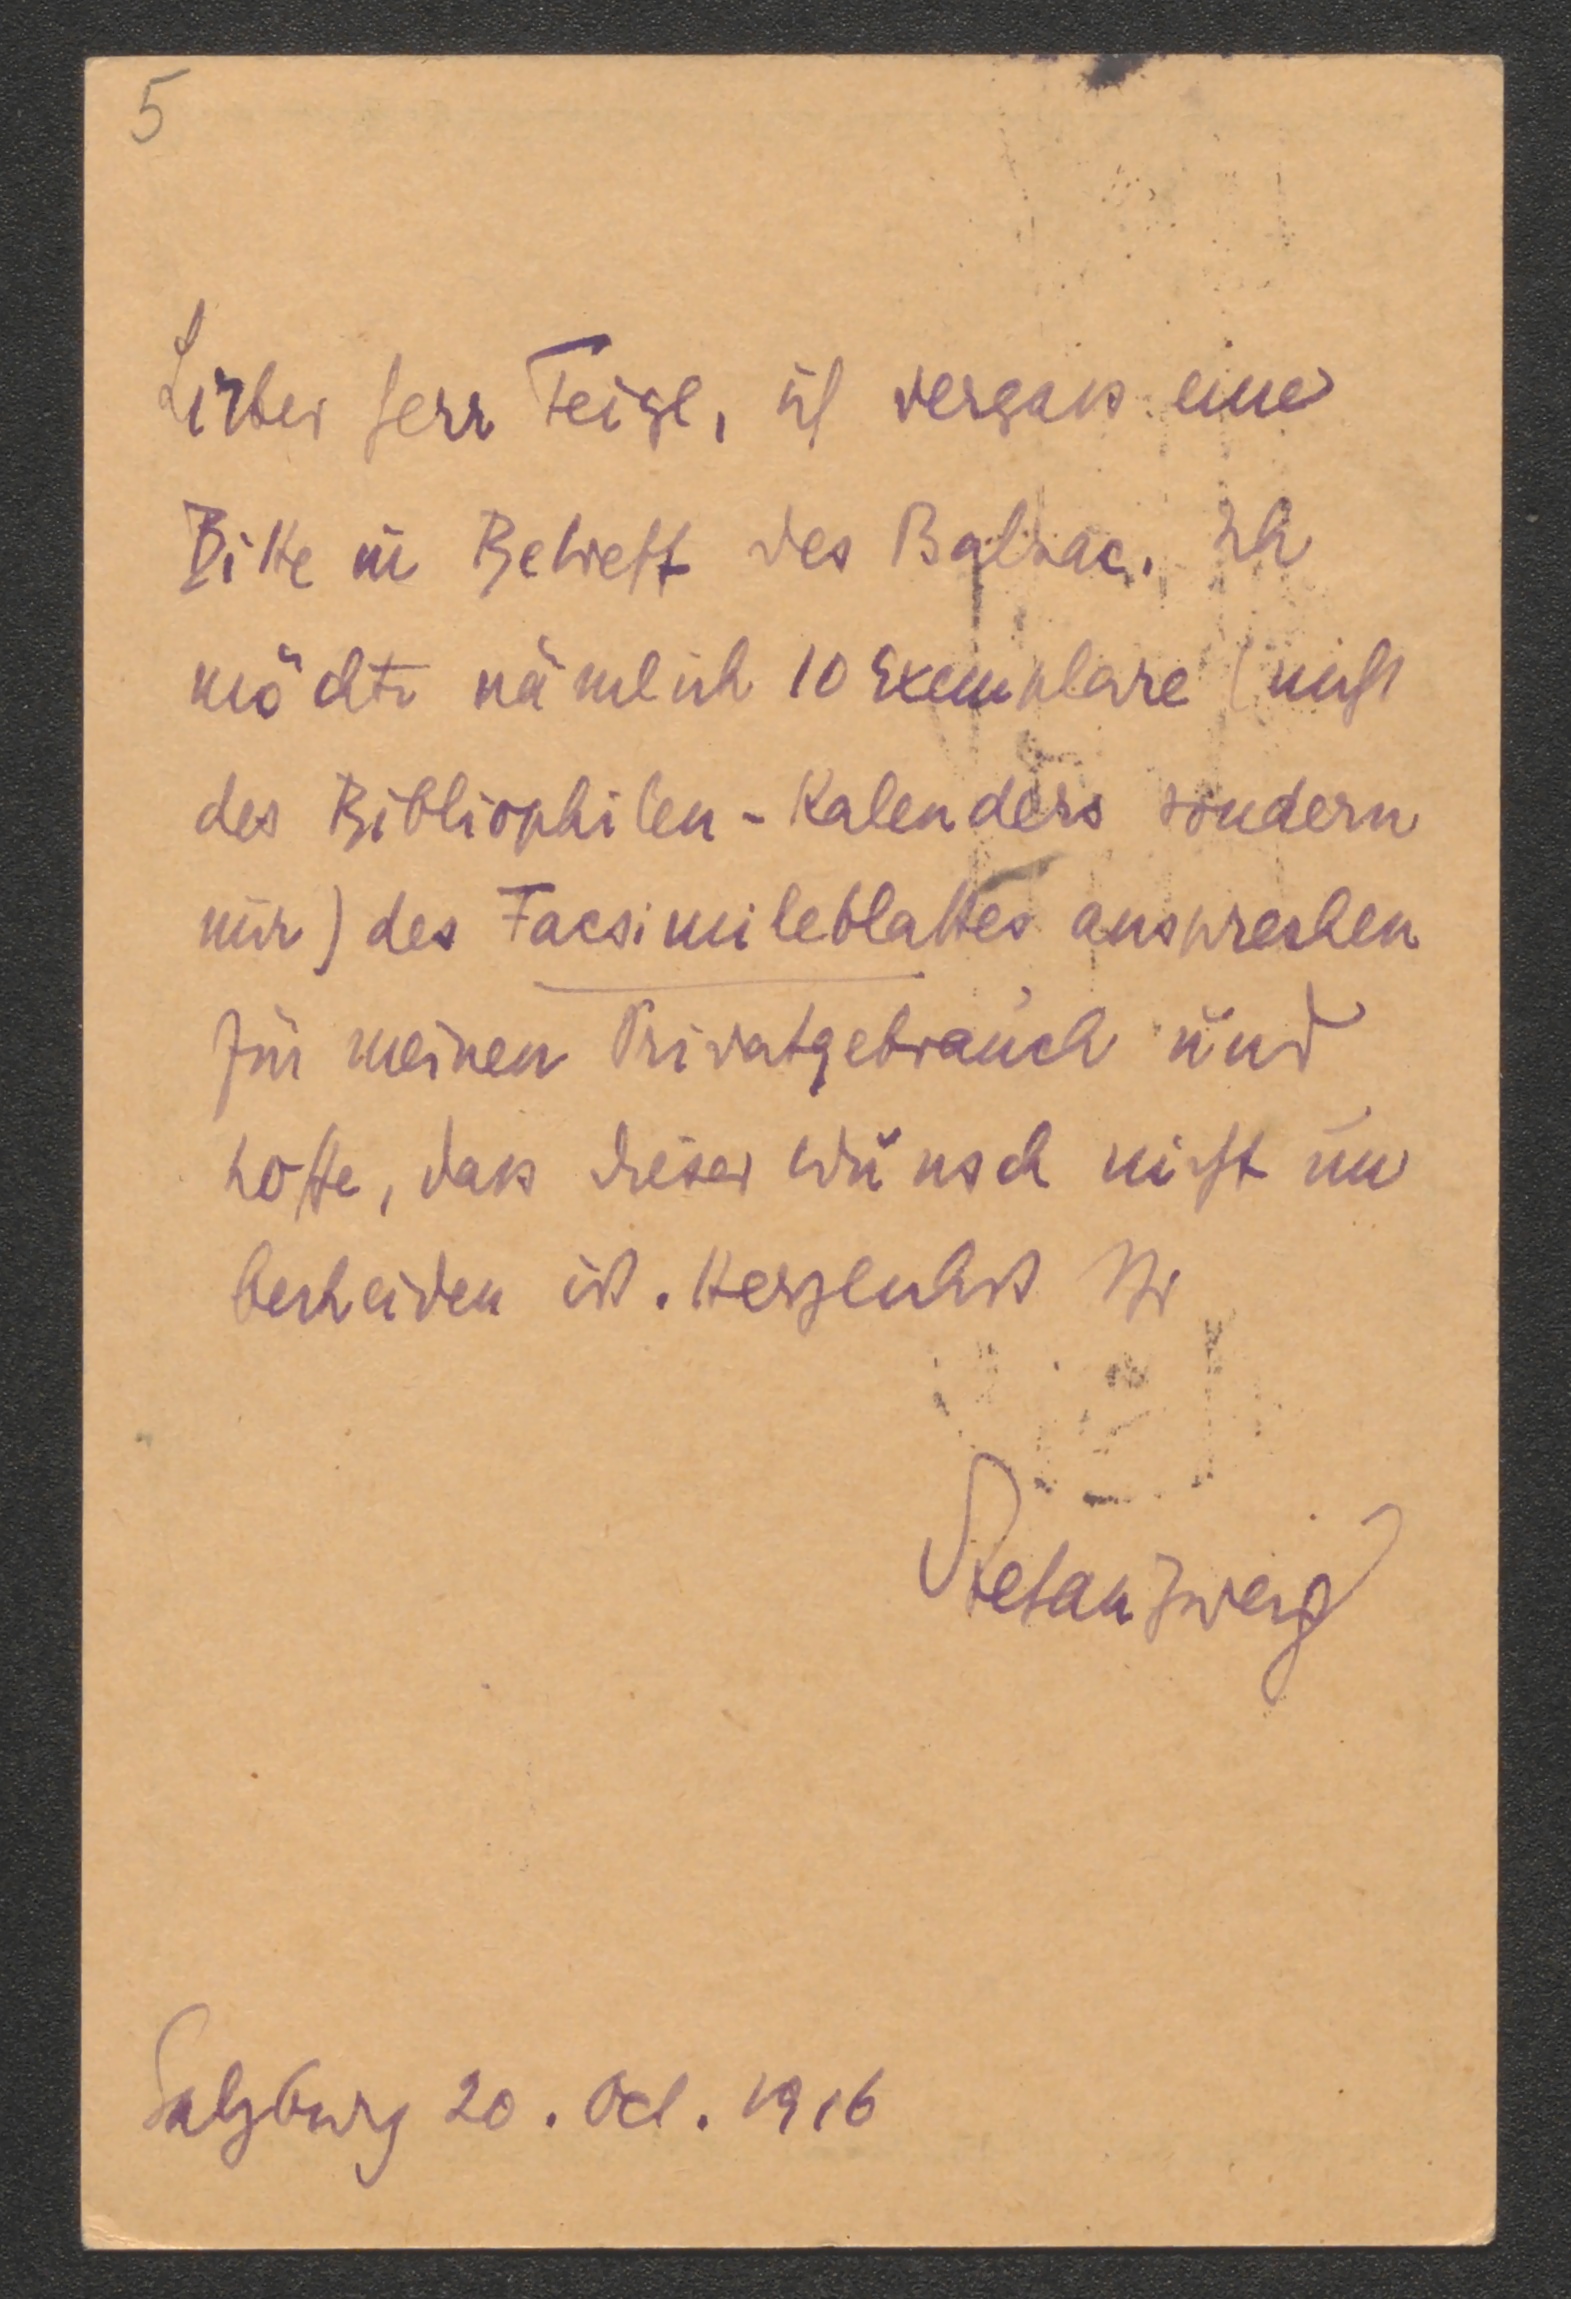 5
Lieber Herr Feigl, ich vergass eine
Bitte in Betreff des Balzac. Ich
möchte nämlich 10 Exemplare (nicht
des Bibliophilen-Kalenders sondern
nur) des Facsimileblattes ansprechen
für meinen Privatgebrauch und
hoffe, dass dieser Wunsch nicht un
bescheiden ist. Herzlichst Ihr
Stefan Zweig
Salzburg 20. Oct. 1916